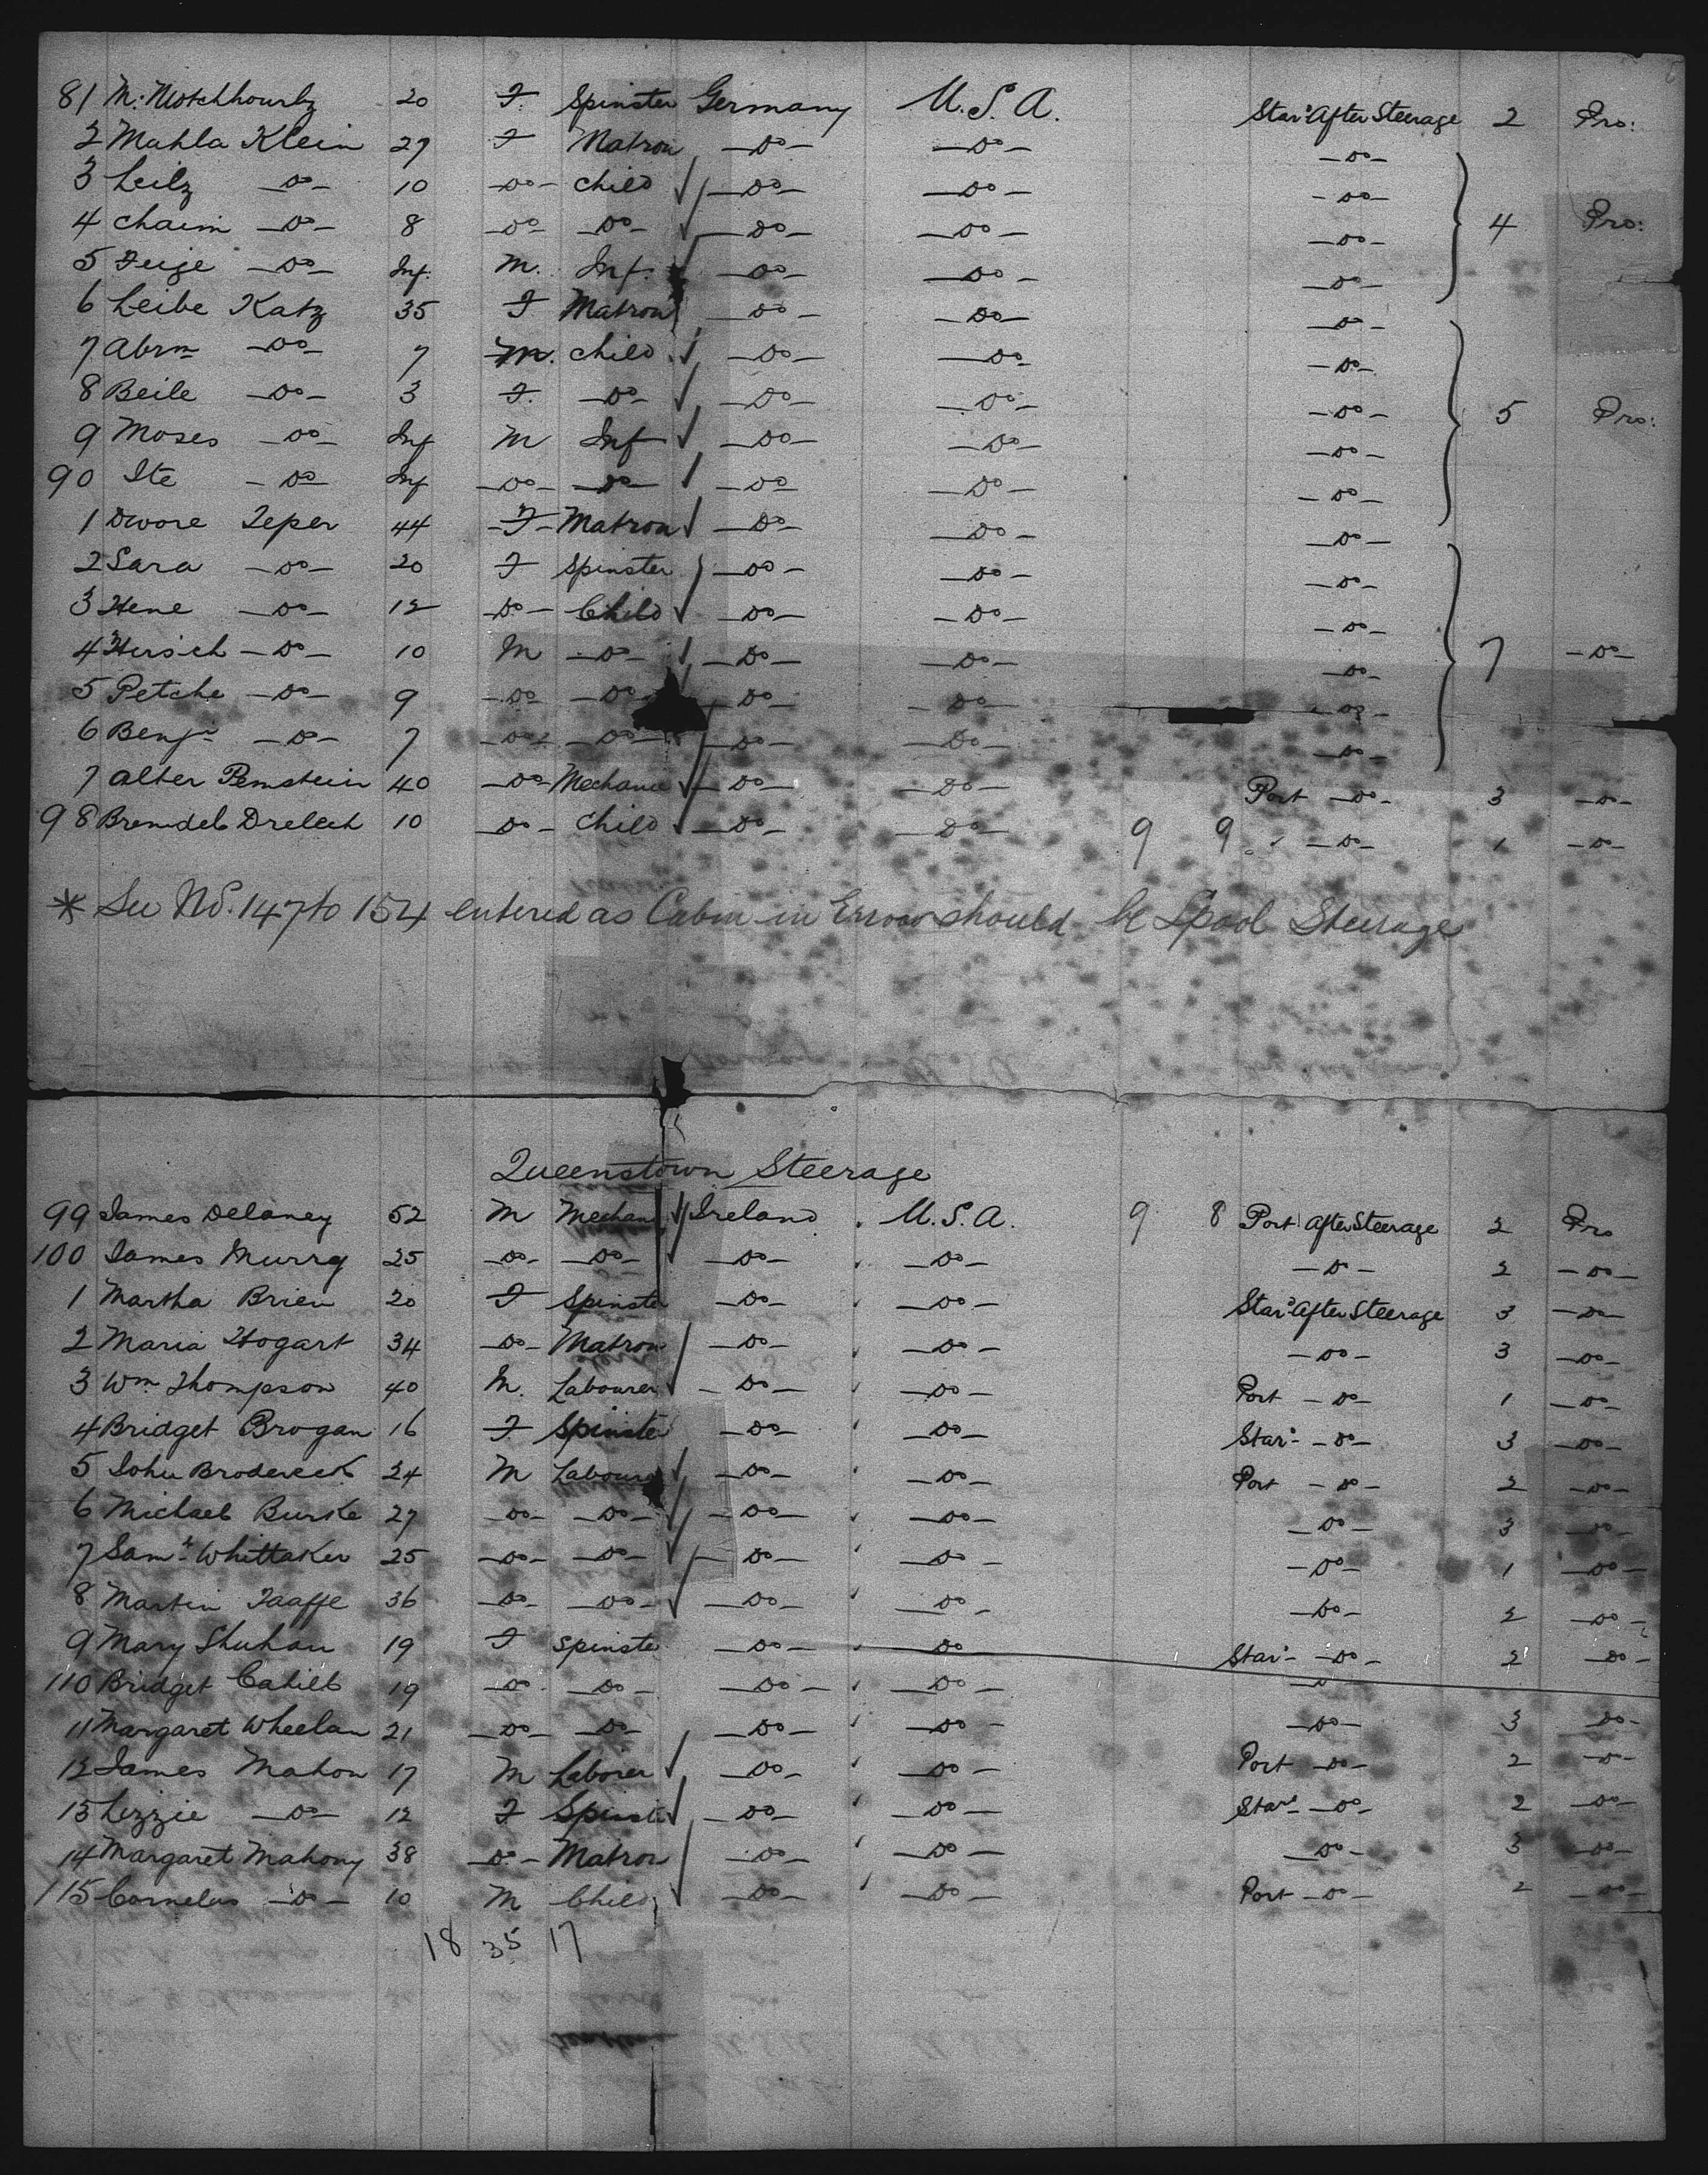 81 M. Motchhourlz 20 F. Spinster Germany U.S.A. Star After Steerage 2 Pro:
2 Mahla Klein 27 F Matron —Do— —Do— —Do—
3 Leilz —Do— 10 —Do— Child —Do— —Do— —Do—
4 Chaim —Do— 8 —Do— —Do— —Do— —Do— —Do— 4 Pro:
5 Feige —Do— Inf. M. Inf. —Do— —Do— —Do—
6 Leibe Katz 35 F Matron —Do— —Do— —Do—
7 Abrm —Do— 7 M. Child —Do— —Do— —Do—
8 Beile —Do— 3 F. —Do— —Do— —Do— —Do— 5 Pro:
9 Moses —Do— Inf M Inf —Do— —Do— —Do—
90 Ite —Do— Inf —Do— —Do— —Do— —Do— —Do—
1 Dwore Teper 44 F Matron —Do— —Do— —Do—
2 Sara —Do— 20 F Spinster —Do— —Do— —Do—
3 Hene —Do— 12 —Do— Child —Do— —Do— —Do—
4 Hersch —Do— 10 M —Do— —Do— —Do— —Do— 7 —Do—
5 Petche —Do— 9 —Do— —Do— —Do— —Do— —Do—
6 Benjn —Do— 7 —Do— —Do— —Do— —Do— —Do—
7 Alter Pemstein 40 —Do— Mechanic —Do— —Do— Port —Do— 3 —Do—
98 Bremdel Drelich 10 —Do— Child —Do— —Do— 9 9 —Do— 1 —Do—
* See No. 147 to 154 entered as Cabin in Error should be Lpool Steerage
Queenstown Steerage
99 James Delaney 52 M Mechanic Ireland U.S.A. 9 8 Port After Steerage 2 Pro
100 James Murry 25 —Do— —Do— —Do— —Do— —Do— 2 —Do—
1 Martha Brien 20 F Spinster —Do— —Do— Star After Steerage 3 —Do—
2 Maria Hogart 34 —Do— Matron —Do— —Do— —Do— 3 —Do—
3 Wm Thompson 40 M. Labourer —Do— —Do— Port —Do— 1 —Do—
4 Bridget Brogan 16 F Spinster —Do— —Do— Star —Do— 3 —Do—
5 John Brodereck 24 M Labourer —Do— —Do— Port —Do— 2 —Do—
6 Michael Burke 27 —Do— —Do— —Do— —Do— —Do— 3 —Do—
7 Saml Whittaker 25 —Do— —Do— —Do— —Do— —Do— 1 —Do—
8 Martin Taaffe 36 —Do— —Do— —Do— —Do— —Do— 2 —Do—
9 Mary Shuhan 19 F Spinster —Do— —Do— Star —Do— 2 —Do—
110 Bridget Cahill 19 —Do— —Do— —Do— —Do— —Do—
11 Margaret Wheelan 21 —Do— —Do— —Do— —Do— —Do— 3 —Do—
12 James Mahon 17 M Laborer —Do— —Do— Port —Do— 2 —Do—
13 Lizzie —Do— 12 F Spinster —Do— —Do— Star —Do— 2 —Do—
14 Margaret Mahony 38 —Do— Matron —Do— —Do— —Do— 3 —Do—
115 Cornelus —Do— 10 M Child —Do— —Do— Port —Do— 2 —Do—
18 35 17